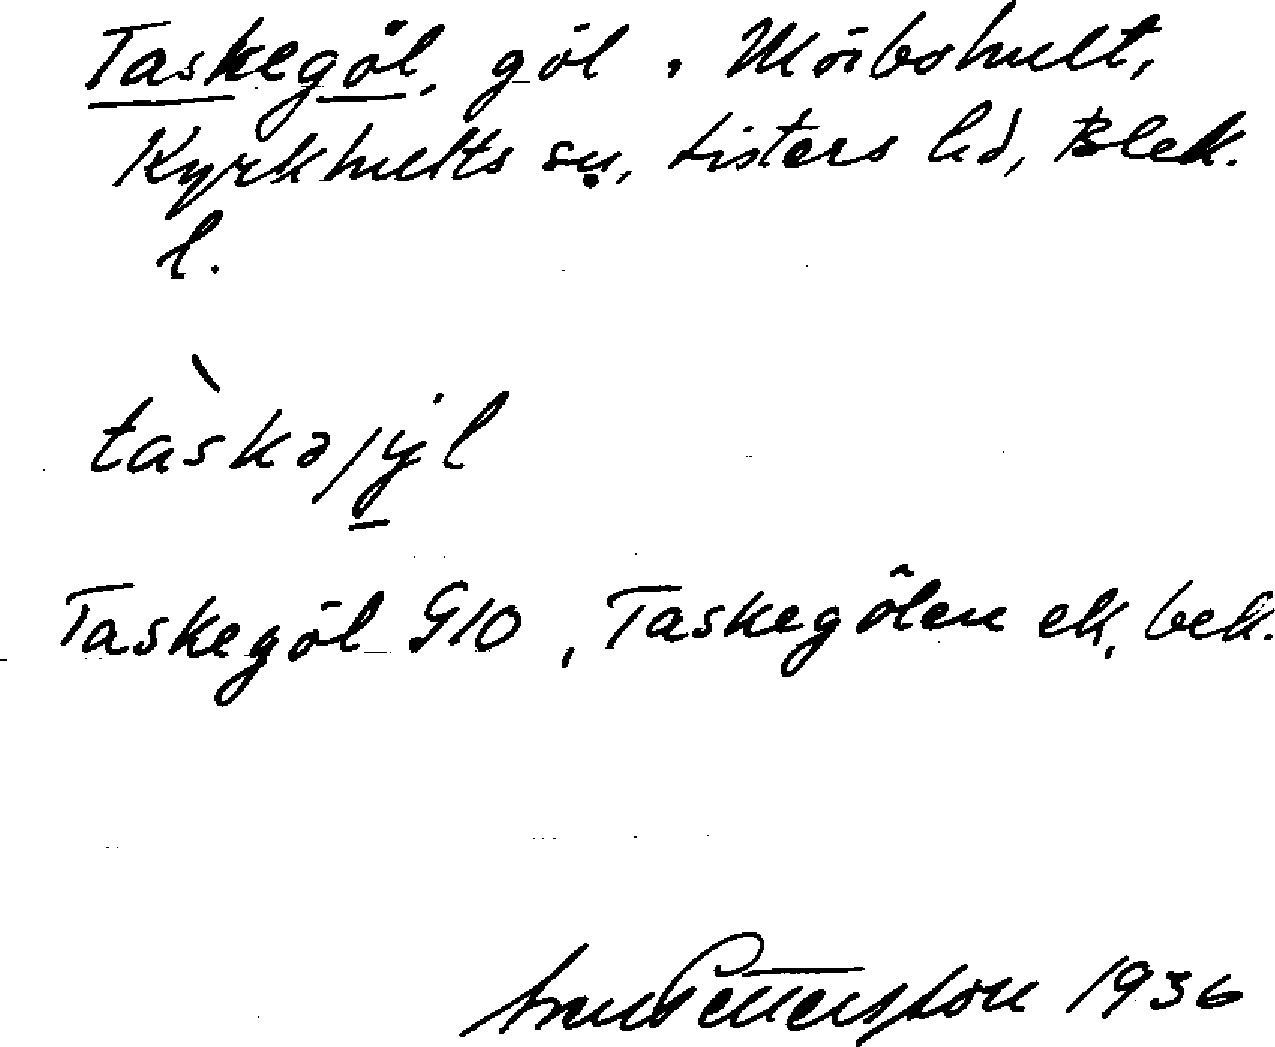 Taskegöl, göl. Möibohult,
Kyrkhults sn, Listers hd, Blek.
l.
tàskəjyl
Taskegöl G10, Taskegölen ek. bek.
Pettersson 1936